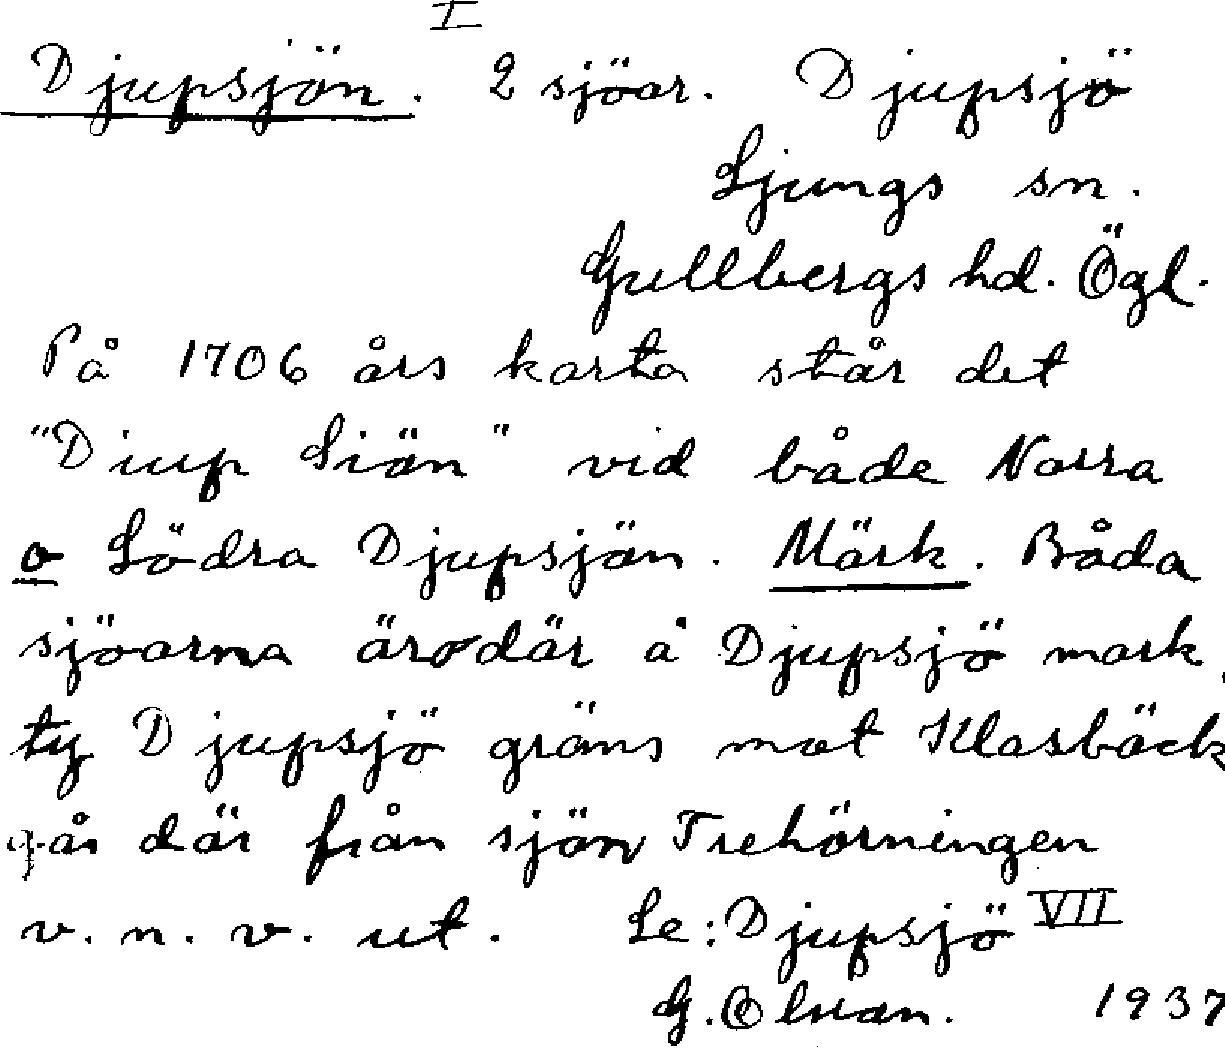 I
Djupsjön. 2 sjöar. Djupsjö
Ljungs sn.
Gullbergs hd. Ögl.
På 1706 års karta står det
"Diup Siön" vid både Norra
o Södra Djupsjön. Märk. Båda
sjöarna äro där å Djupsjö mark,
ty Djupsjö gräns mot Klasbäck
går där från sjön Trehörningen
v. n. v. ut. Se: Djupsjö VII
G. Olsson. 1937